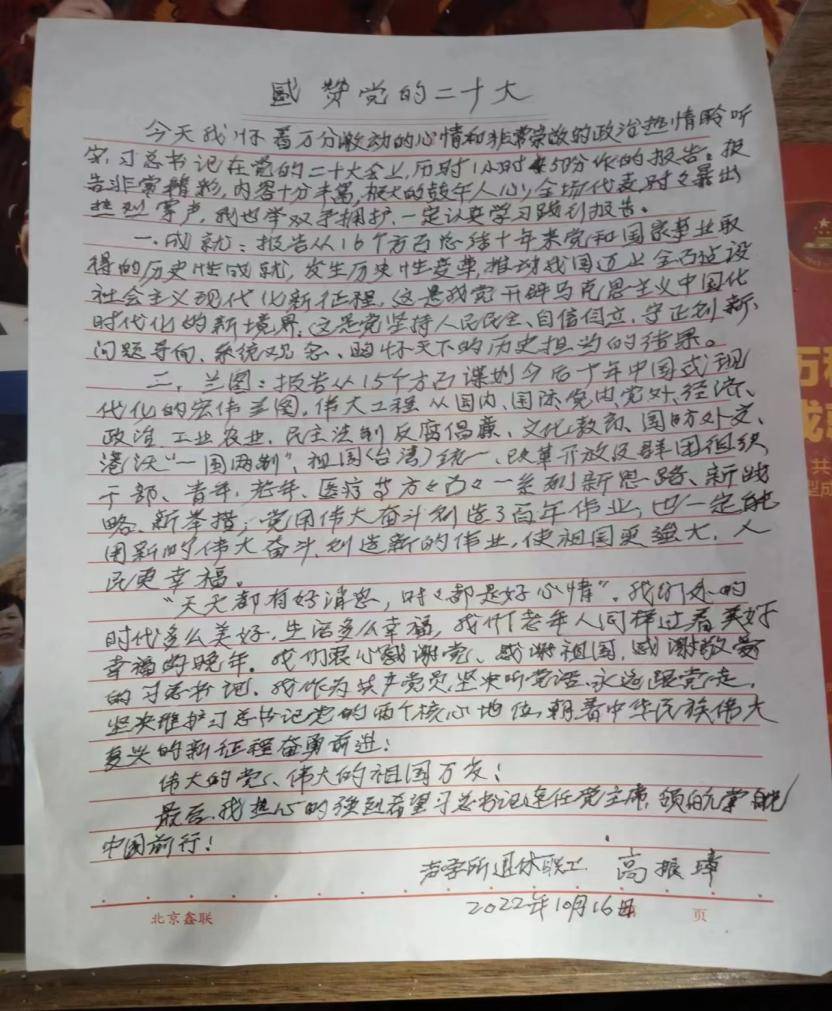 感赞党的二十大
今天我怀着万分激动的心情和非常崇敬的政治热情聆听
习总书记在党的二十大会上,历时1小时50分作的报告。报
告非常精彩,内容十分丰富,极大的鼓午人心,全场代表时々暴出
热烈掌声,我也举双手拥护,一定认真学习践行报告。
一.成就:报告从16个方面总结十年来党和国家事业取
得的历史性成就,发生历史性变革,推动我国迈上全面建设
社会主义现代化新征程,这是我党开辟马克思主义中国化
时代化的新境界,这是党坚持人民民主、自信自立、守正创新、
问题导向、系统观念、胸怀天下的历史担当的结果。
二.兰图:报告从15个方面谋划今后十年中国式现
代化的宏伟兰图,伟大工程从国内、国际党内、党外、经济、
政治、工业农业、民主法制反腐倡廉、文化教育、国防外交、
港沃“一国两制”、祖国(台湾)统一、改革开放及群团组织
干部、青年、老年、医疗等方々面々一系列新思路、新战
略、新举措,党用伟大奋斗创造了百年伟业,也一定能
用新的伟大奋斗创造新的伟业,使祖国更强大,人
民更幸福。
“天天都有好消息,时々都是好心情”。我们处的
时代多么美好,生活多么幸福,我们老年人同样过着美好
幸福的晚年。我们衷心感谢党、感谢祖国,感谢敬爱
的习总书记。我作为共产党员坚决听党话、永远跟党走,
坚决维护习总书记党的两个核心地位,朝着中华民族伟大
复兴的新征程奋勇前进!
伟大的党、伟大的祖国万岁!
最后,我热心的强烈希望习总书记连任党主席,领航掌舵
中国前行!
声学所退休职工 高振璋
2022年10月16日
北京鑫联 页